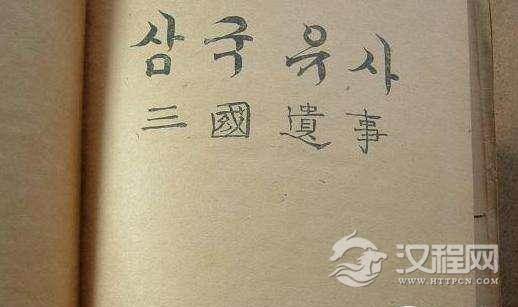 삼국유사
三國遺事
汉程网
WWW.HTTPCN.COM